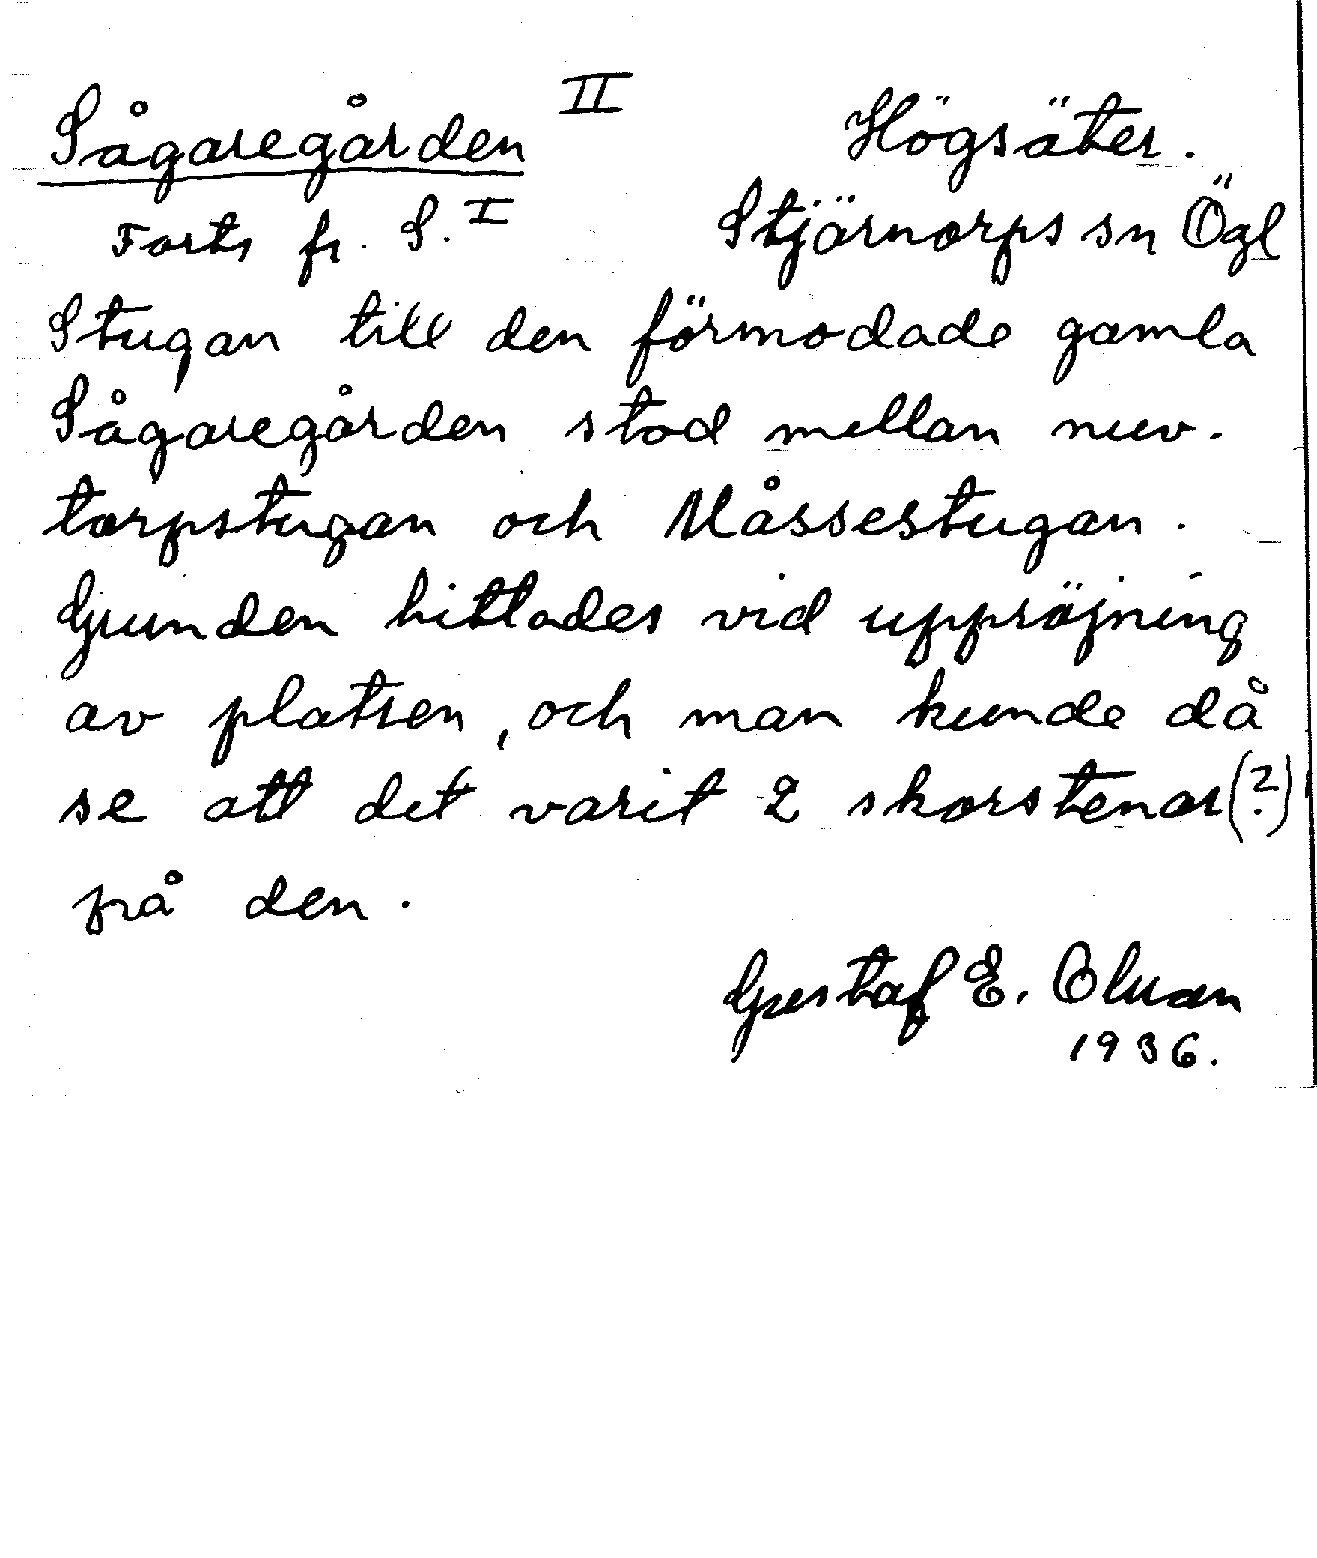 Sågaregården II Högsäter.
Forts fr. S. I Stjärnorps sn Ögl
Stugan till den förmodade gamla
Sågaregården stod mellan nuv.
torpstugan och Måssestugan.
Grunden hittades vid uppröjning
av platsen, och man kunde då
se att det varit 2 skorstenar(?)
på den.
Gustaf E. Olsson
1936.